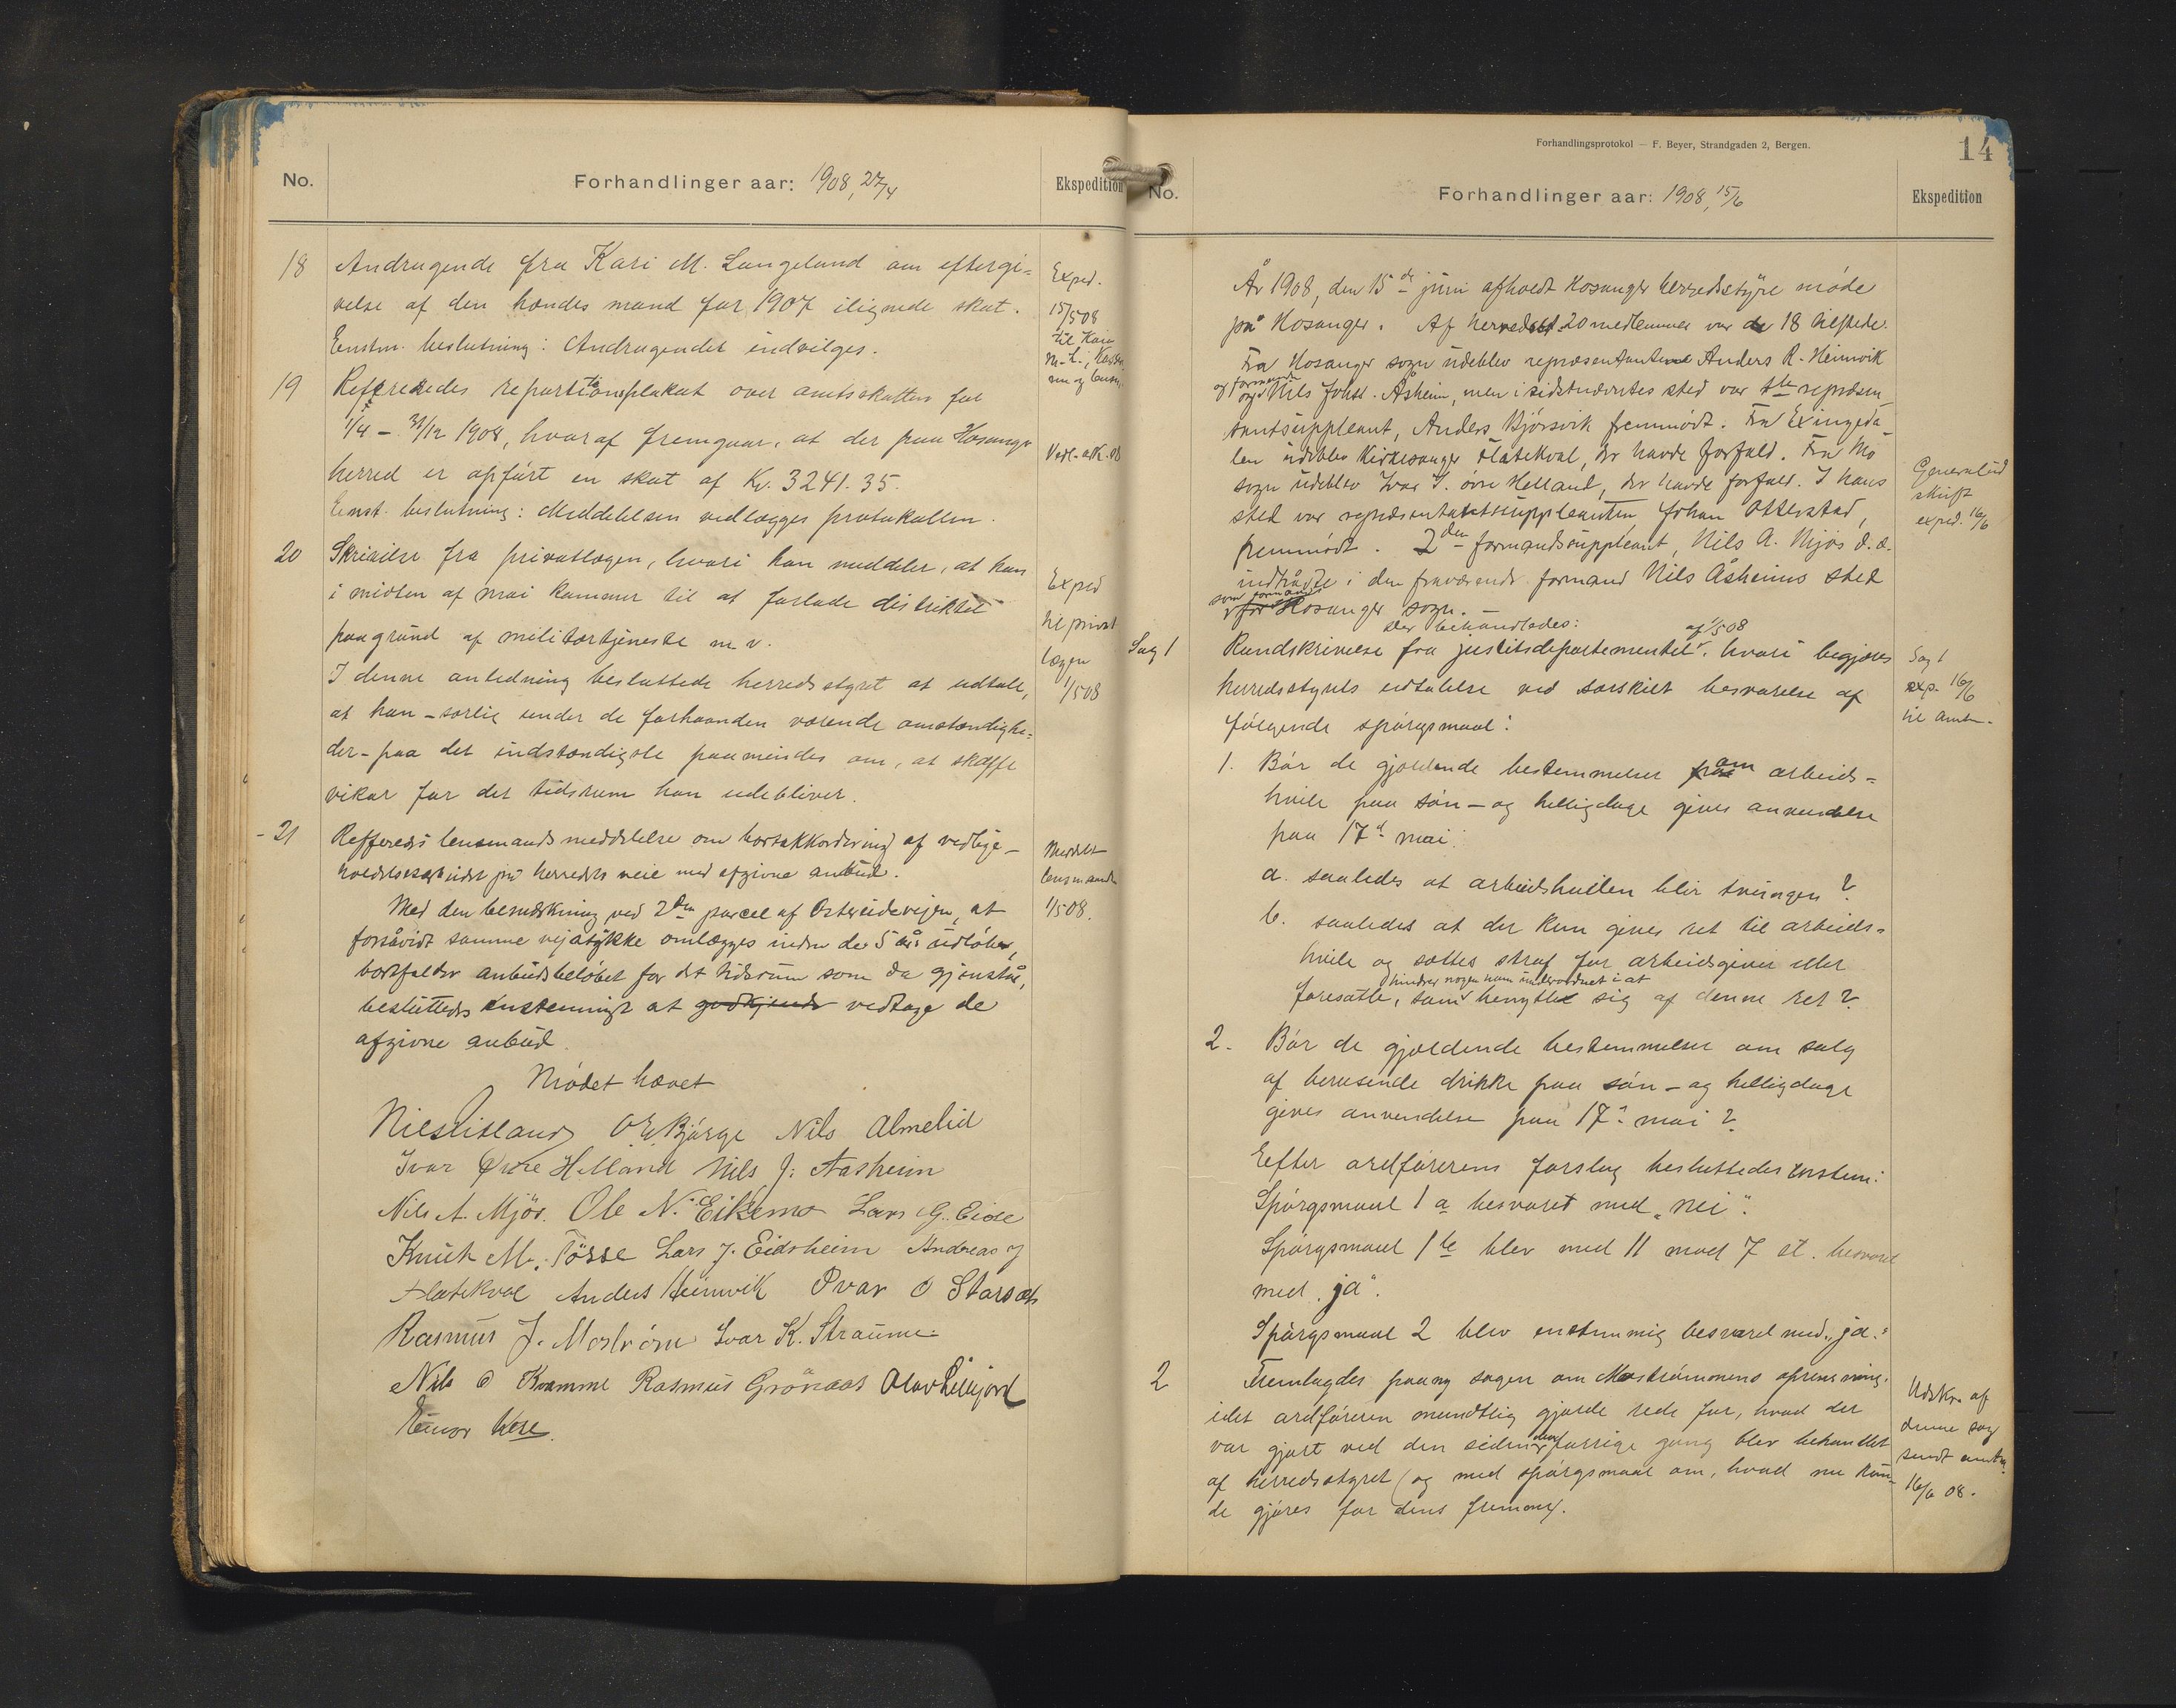 No.
Forhandlinger aar: 1908, 27/4
Ekspedition
18
Andragende fra Kari M. Langeland om eftergi=
velse af den hændes mand for 1907 ilignede skat.
Enstm. beslutning: Andragendet indvilges.
Exped.
15/5 08
til Kari
M. L.,
19
Reffereredes repartitionsplakat over amtsskatten for
1/4 - 31/12 1908, hvoraf fremgaar, at der paa Hosanger
herred er opført en skat af Kr. 3241.35.
Enst. beslutning: Meddelelsen vedlægges protokollen.
20
Skrivelse fra privatlægen, hvori han meddeler, at han
i midten af mai kommer til at forlade distriktet
paa grund af militærtjeneste m. v.
I denne anledning besluttede herredsstyret at udtale,
at han - særlig under de forhaanden værende omstændighe=
der - paa det indstændigste paamindes om, at skaffe
vikar for det tidsrum han udebliver.
Exped
til privat
lægen
1/5 08
- 21
Refferedes lensmands meddelelse om bortakkordering af vedlige-
holdelsesarbeidet på herredets veie med afgivne anbud.
Med den bemærkning ved 2den parcel af Ostereidevejen, at
forsåvidt samme vejstykke omlægges inden de 5 års udløb,
bortfalder anbudsbeløbet for det tidsrum som da gjenstår,
besluttedes enstemmigt at godkjende vedtage de
afgivne anbud.
Meddelt
lensmanden
1/5 08.
Mødet hævet
Nils Lisland O. E. Bjørge Nils Almelid
Ivar Øvre Helland Nils J. Aasheim
Nils A. Mjøs. Ole N. Eikemo Lars G. Eide
Knut M. Tøsse Lars J. Eidsheim Andreas J
Flatekval Anders Heimvik Ivar O Storsæt
Rasmus J. Mostrøm Ivar K. Straume
Nils O Kvamme Rasmus Grønaas Olav Lillejord
Forhandlingsprotokol — F. Beyer, Strandgaden 2, Bergen.
14
No.
Forhandlinger aar: 1908, 15/6
Ekspedition
År 1908, den 15de juni afholdt Hosanger herredsstyre møde
på Hosanger. Af herredets 20 medlemmer var de 18 tilstede.
Fra Hosanger sogn udeblev repræsentanterne Anders R. Heimvik
og formand og Nils Johs. Åsheim, men i sidstnævntes sted var 1ste repræsen-
tantsuppleant, Anders Bjørsvik fremmødt. Fra Exingeda-
len udeblev Kirkesanger Flatekval, der havde forfald. Fra Mo
sogn udeblev Ivar I. øvre Helland, der havde forfald. I hans
sted var repræsentantsuppleanten, Johan Otterstad,
fremmødt. 2den formandssuppleant, Nils A. Mjøs d. æ.
indtrådte i den fraværende formand Nils Åsheims sted
som formand for Hosanger sogn. -
Generaludskrift
exped. 16/6
Der behandledes:
Sag 1
Rundskrivelse fra justitsdepartementet af 1/5 08, hvori begjæres
herredsstyrets udtalelse ved særskilt besvarelse af
følgende spørgsmaal:
Sag 1
exp. 16/6
til amtm.
1. Bør de gjældende bestemmelser om arbeids=
hvile paa søn- og helligdage gives anvendelse
paa 17de mai:
a. saaledes at arbeidshvilen blir tvungen?
b. saaledes at der kun gives ret til arbeids=
hvile og sættes straf for arbeidsgiver eller
foresatte, som hindrer nogen ham underordnet i at benytte sig af denne ret?
2. Bør de gjældende bestemmelser om salg
af berusende drikke paa søn- og helligdage
gives anvendelse paa 17de mai?
Efter ordførerens forslag besluttedes enstem:
Spørgsmaal 1 a besvaret med „nei“.
Spørgsmaal 1 b blev med 11 mod 7 st. besvaret
med „ja“.
Spørgsmaal 2 blev enstemmig besvaret med „ja.“
2
Fremlagdes paany sagen om Mostrømmens oprensning,
idet ordføreren mundtlig gjorde rede for, hvad der
var gjort ved den siden den forrige gang blev behandlet
af herredsstyret (og med spørgsmaal om, hvad nu kun-
de gjøres for dens fremme).
Udskr. af
denne sag
sendt amtm.
16/6 08.